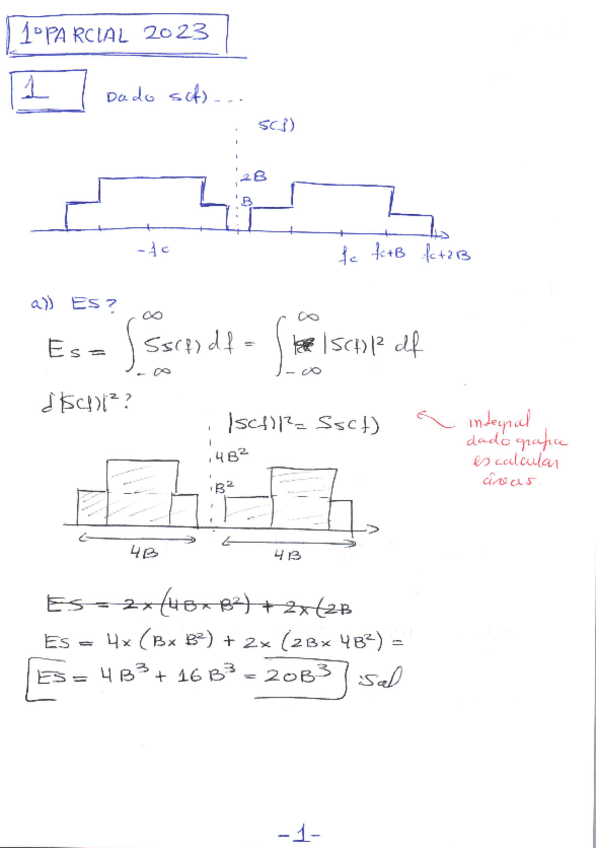 1º PARCIAL 2023
1 Dado S(f)...
S(f)
2B
B
-fc fc fc+B fc+2B
a)) Es?
Es = ∫_{-∞}^{∞} Ss(f) df = ∫_{-∞}^{∞} |S(f)|² df
¿|S(f)|²?
|S(f)|² = Ss(f)
integral
dado grafica
es calcular
áreas.
4B²
B²
4B 4B
Es = 2x(4B x B²) + 2x(2B
Es = 4x(B x B²) + 2x(2B x 4B²) =
Es = 4B³ + 16B³ = 20B³ :Sol
-1-